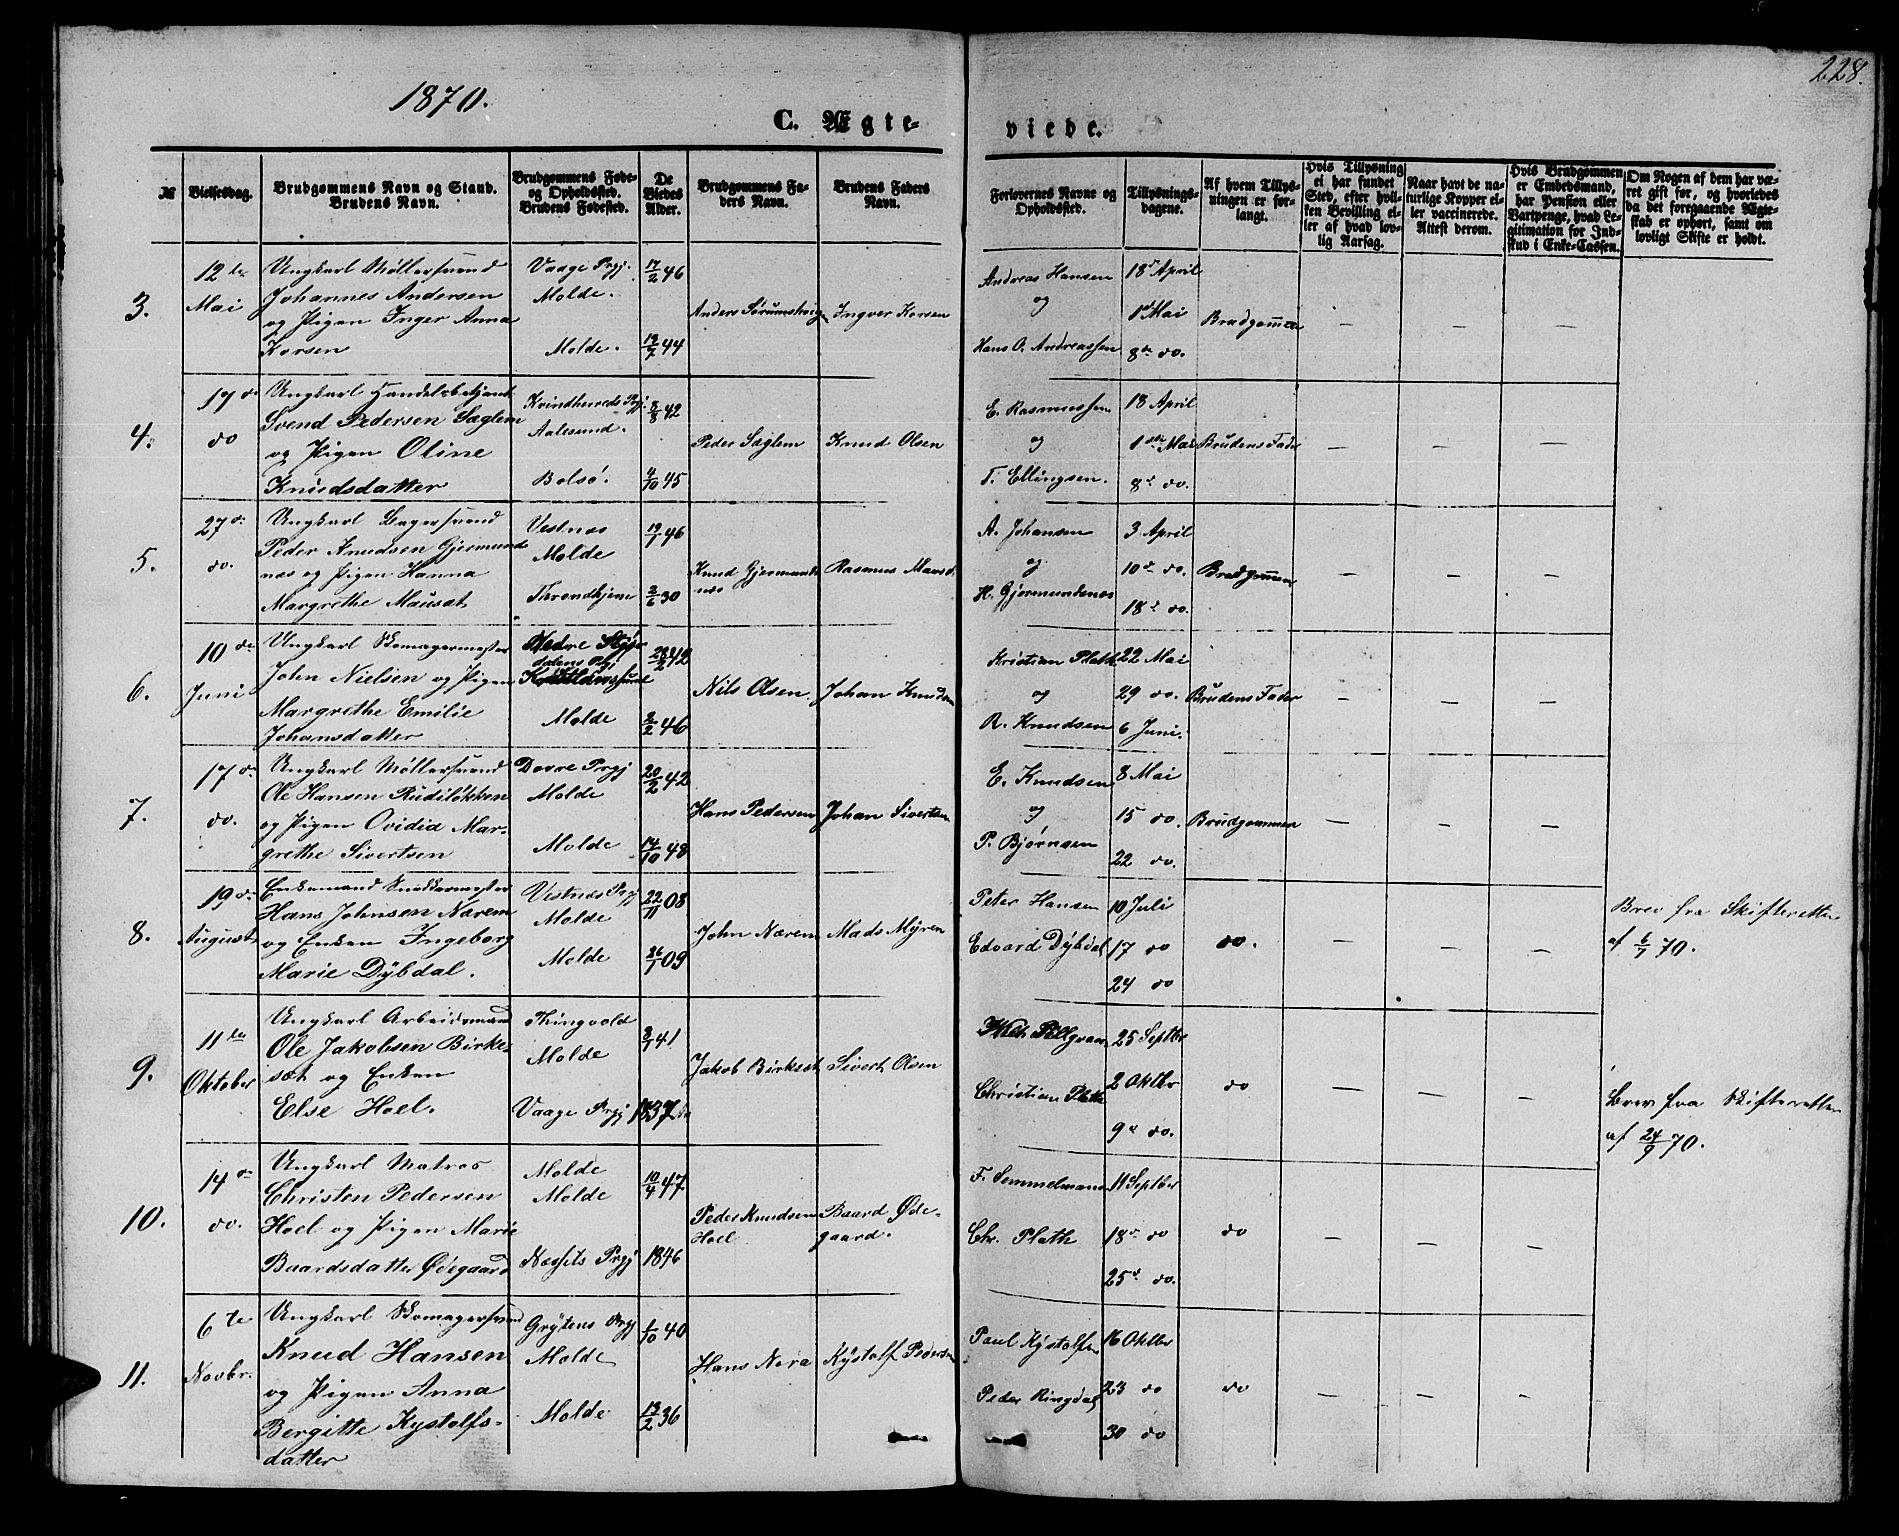 1870.
228.
C. Ægte-
viede.
№
Vielsesdag.
Brudgommens Navn og Stand.
Brudens Navn.
Brudgommens Føde-
og Opholdssted.
Brudens Fødested.
De
Viedes
Alder.
Brudgommens Fa-
ders Navn.
Brudens Faders
Navn.
Forlovernes Navne og
Opholdssted.
Tillysnings-
dagene.
Af hvem Tillys-
ningen er for-
langt.
Hvis Tillysning
ei har fundet
Sted, efter hvil-
ken Bevilling el-
ler af hvad lov-
lig Aarsag.
Naar havt de na-
turlige Kopper el-
ler vaccinerede.
Attest derom.
Hvis Brudgommen
er Embedsmand,
har Pension eller
Vartpenge, hvad Le-
gitimation for Ind-
skud i Enke-Cassen.
Om Nogen af dem har væ-
ret gift før, og hvorledes
da det foregaaende Ægte-
skab er ophørt, samt om
lovligt Skifte er holdt.
3.
12te
Mai
Ungkarl Møllersvend
Johannes Andersen
og Pigen Inger Anna
Korsen
Vaage Prgj.
Molde.
Molde.
17/2 46
19/7 44
Ingver Korsen
Andreas Hansen
og
Hans O. Andreassen
18d April
1d Mai
8de do.
Brudgommen
4.
17d
do
Ungkarl Handelsbetjent
Svend Pedersen Sæglem
og Pigen Oline
Knudsdatter
Kvindherreds Prgj.
Aalesund.
Bolsø.
8/8 42
4/10 45
Peder Sæglem
Knud Olsen
E. Rasmussen
og
T. Ellingsen.
18 April
1ste Mai
8d do.
Brudens Fader
5.
27d
do.
Ungkarl Bagersvend
Peder Knudsen Gjermund
næs og Pigen Hanna
Margrethe Mausæt
Vestnæs
Molde
Throndhjem
19/1 46
2/6 30
Knud Gjermunds
næs
Rasmus
A. Johansen
og
H. Gjermundsnæs
3 April
10d do.
18d do.
Brudgommen
6.
10de
Juni
Ungkarl Skomagermester
John Nielsen og Pigen
Margrethe Emilie
Johansdatter
Nedre
dalens Prgj
Molde
28/2 42
2/2 46
Nils Olsen.
Johan Knudsen
Kristian Plath
og
R. Knudsen
22 Mai
29 do.
6 Juni.
Brudens Fader
7.
17d
do.
Ungkarl Møllersvend
Ole Hansen Rudiløkken
og Pigen Ovidia Mar-
grethe Sivertsen
Dovre Prgj
Molde
Molde
20/2 42
14/10 48
Hans Pedersen
Johan Sivertsen
E. Knudsen
og
P. Bjørnsen
8 Mai
15 do.
22 do.
Brudgommen
8.
19d
August
Enkemand Snedkermester
Hans Johnsen Nærem
og Enken Ingeborg
Marie Dÿbdal.
Vestnæs Prgj
Molde
Molde
22/11 08
26/1 09
John Nærem
Mads Mÿren
Peter Hansen
Edvard Dÿbdal
10 Juli
17 do
24 do
do.
Brev fra Skifteretten
af 6/7 70.
9.
11te
Oktober
Ungkarl Arbeidsmand
Ole Jakobsen Birke-
sæt og Enken
Else Hoel.
Thingvold
Molde
Vaage Prgj
2/1 41
Jakob Birkesæt
Sivert Olsen
Christian Plath
25 Septbr
2 Oktbr
9d do.
do
Brev fra Skifteretten
af 24/9 70.
10.
14d
do.
Ungkarl Matros
Christen Pedersen
Hoel og Pigen Marie
Baardsdatter Ødegaard
Molde
Molde
Næssets Prgj
10/4 47
1846
Peder Knudsen
Hoel
Baard Øde-
gaard.
F. Semmelmann
Chr. Plath
11 Septbr
18d do
25d do.
do
11.
6te
Novbr.
Ungkarl Skomagersvend
Knud Hansen
og Pigen Anna
Bergitte Kystolfs-
datter
Grÿtens Prgj
Molde
Molde
1/10 40
13/2 36
Hans Nora
Kÿstolf Pedersen
Paul Kÿstolfsen
Peder Ringdal
16 Oktbr
23 do
30 do
do